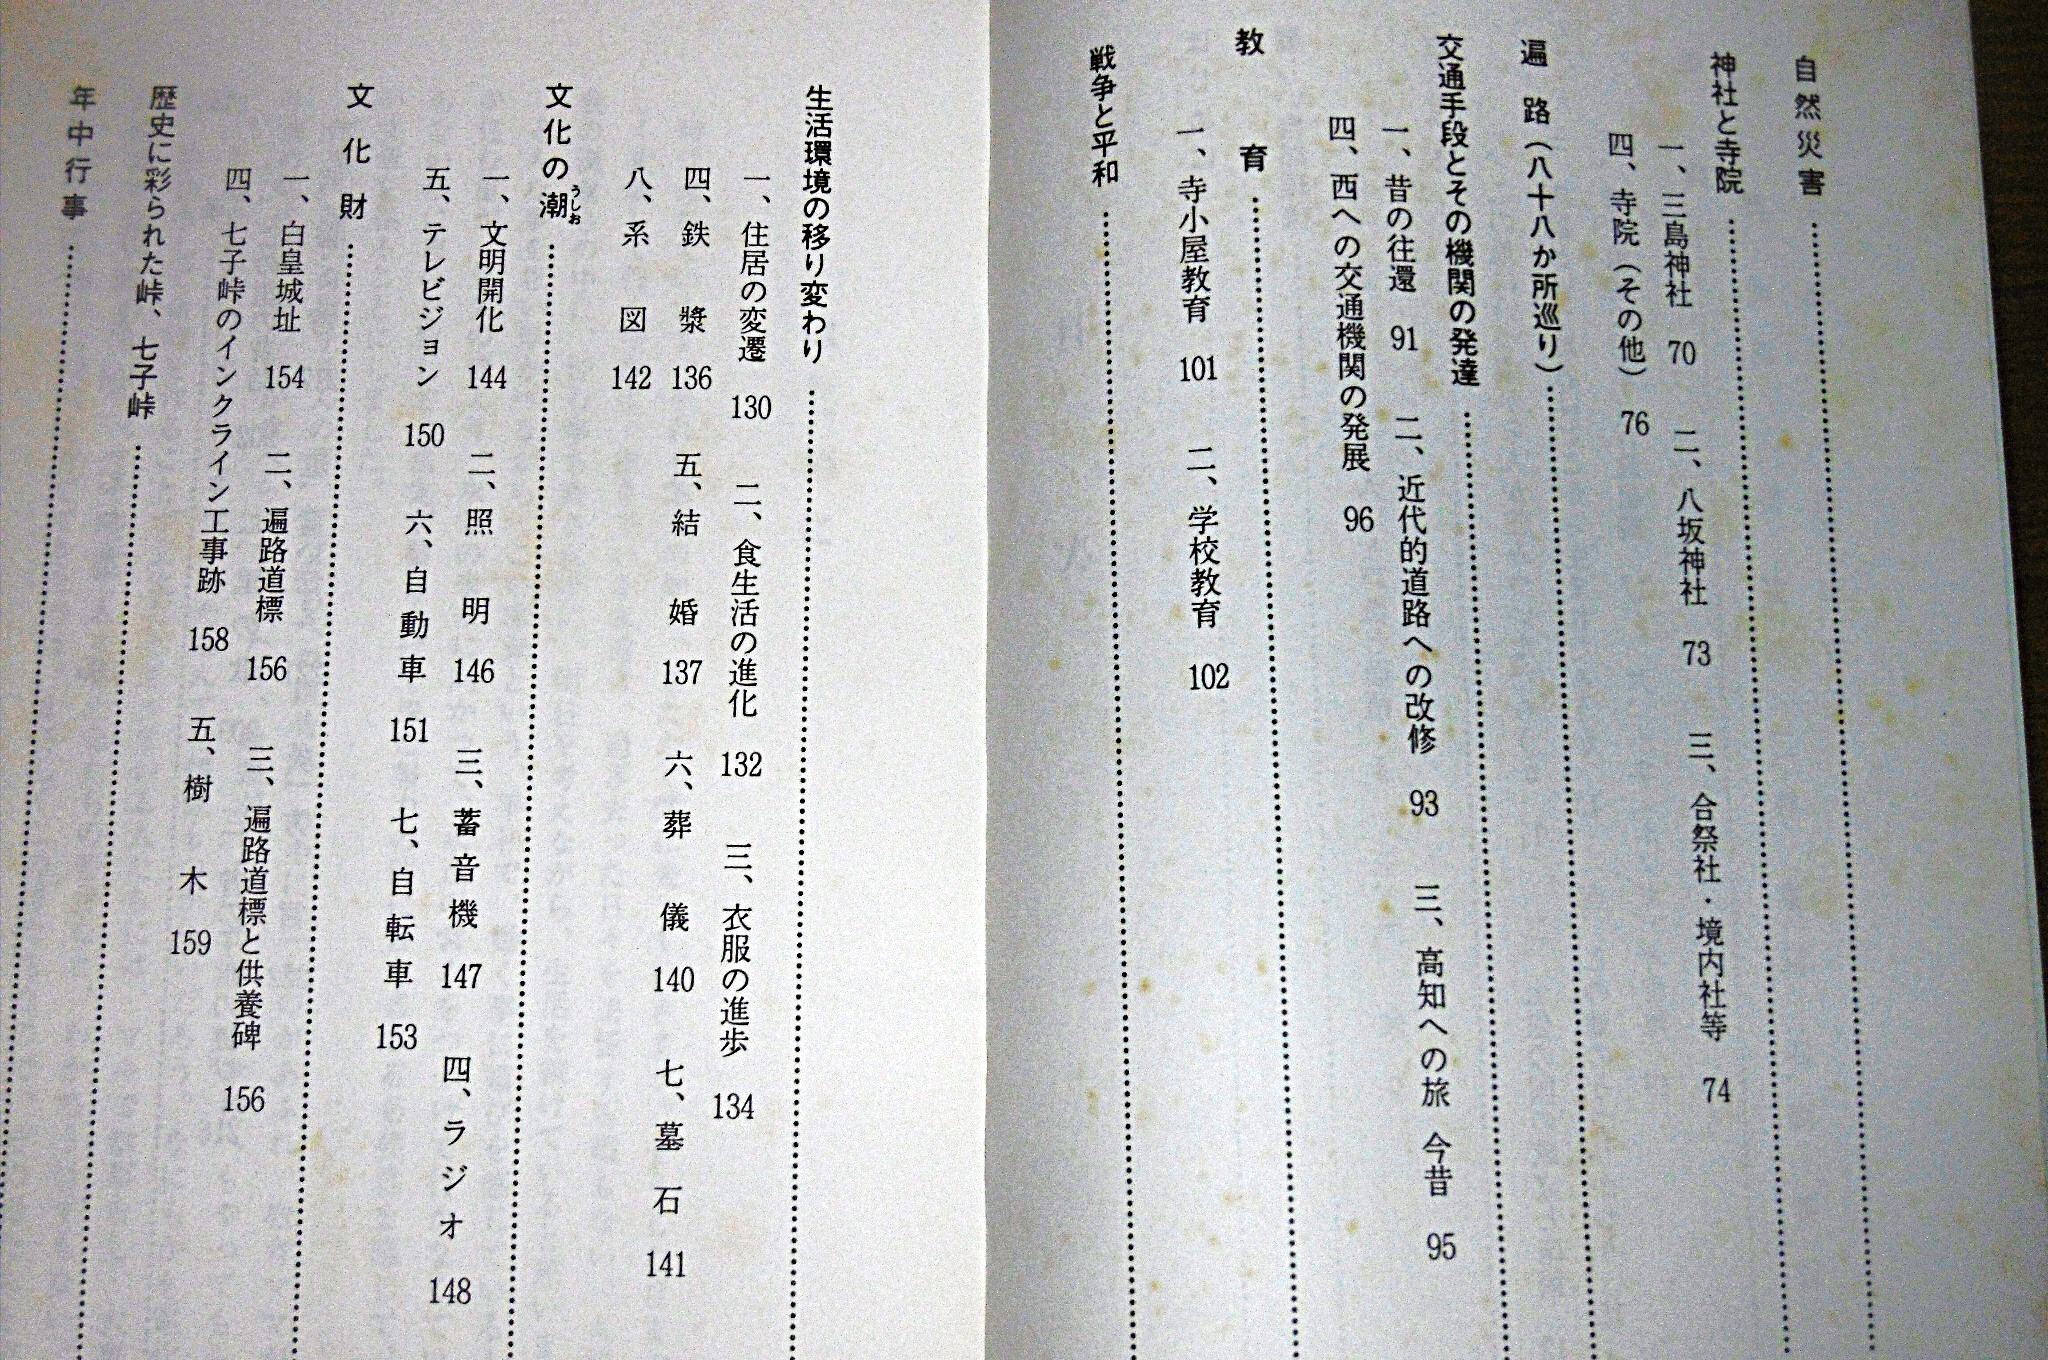 自然災害
神社と寺院
一、三島神社 70 二、八坂神社 73 三、合祭社・境内社等 74
四、寺院（その他） 76
遍路（八十八か所巡り）
交通手段とその機関の発達
一、昔の往還 91 二、近代的道路への改修 93 三、高知への旅 今昔 95
四、西への交通機関の発展 96
教育
一、寺小屋教育 101 二、学校教育 102
戦争と平和
生活環境の移り変わり
一、住居の変遷 130 二、食生活の進化 132 三、衣服の進歩 134
四、鉄漿 136 五、結婚 137 六、葬儀 140 七、墓石 141
八、系図 142
文化の潮うしお
一、文明開化 144 二、照明 146 三、蓄音機 147 四、ラジオ 148
五、テレビジョン 150 六、自動車 151 七、自転車 153
文化財
一、白皇城址 154 二、遍路道標 156 三、遍路道標と供養碑 156
四、七子峠のインクライン工事跡 158 五、樹木 159
歴史に彩られた峠、七子峠
年中行事